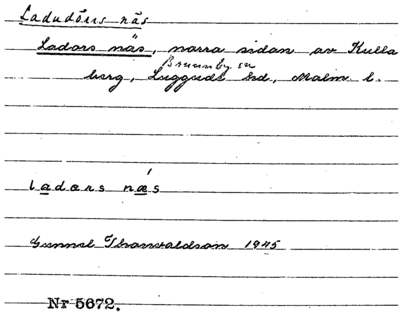 Ladudörrs näs
Ladors näs, norra sidan av Kulla
Brunnby sn
berg, Luggude hd, Malm. l.
ladors næ´s
Gunnel Thorvaldson 1945
Nr 5672.